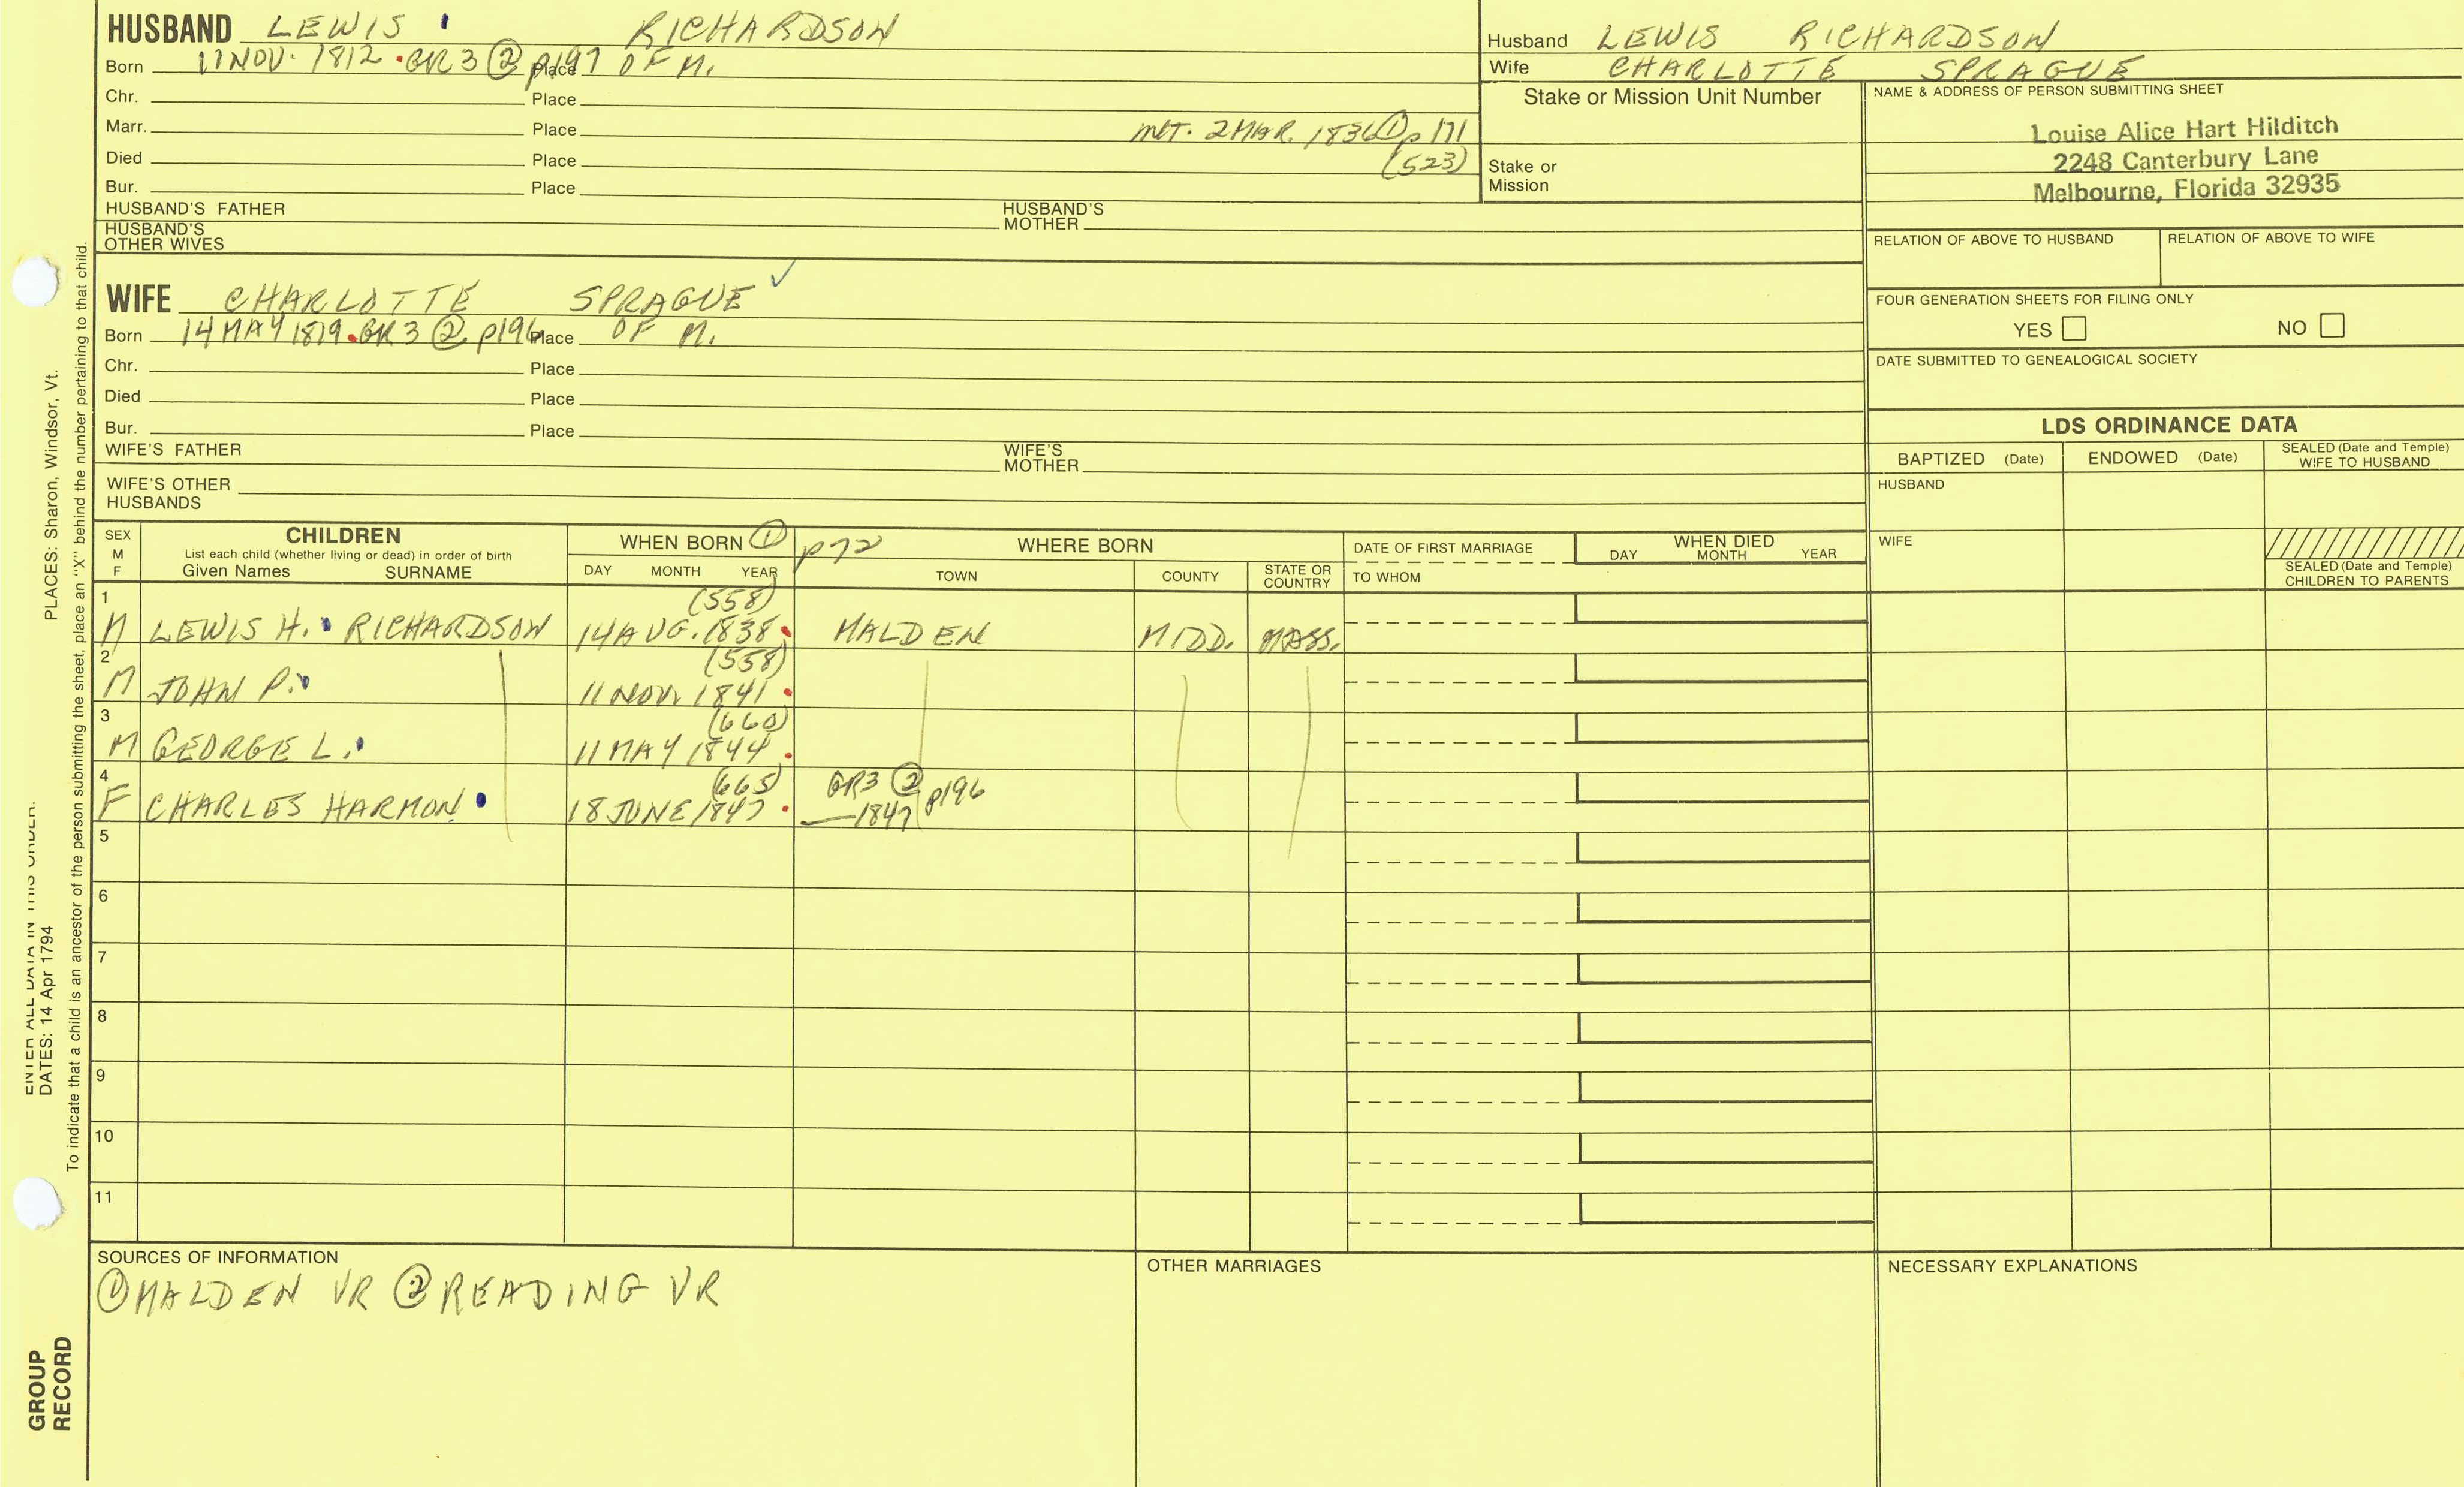 HUSBAND LEWIS RICHARDSON
Born 11 NOV. 1812 . GR 3 ② p197 Place OF M.
Chr. Place
Marr. Place INT. 2 MAR. 1836 ① p 171
Died Place (523)
Bur. Place
HUSBAND'S FATHER HUSBAND'S MOTHER
HUSBAND'S OTHER WIVES
Husband LEWIS RICHARDSON
Wife CHARLOTTE SPRAGUE
Stake or Mission Unit Number
Stake or
Mission
NAME & ADDRESS OF PERSON SUBMITTING SHEET
Louise Alice Hart Hilditch
2248 Canterbury Lane
Melbourne, Florida 32935
RELATION OF ABOVE TO HUSBAND RELATION OF ABOVE TO WIFE
FOUR GENERATION SHEETS FOR FILING ONLY
YES NO
DATE SUBMITTED TO GENEALOGICAL SOCIETY
WIFE CHARLOTTE SPRAGUE ✓
Born 14 MAY 1819 . GR 3 ② p196 Place OF M.
Chr. Place
Died Place
Bur. Place
WIFE'S FATHER WIFE'S MOTHER
WIFE'S OTHER HUSBANDS
LDS ORDINANCE DATA
BAPTIZED (Date) ENDOWED (Date) SEALED (Date and Temple) WIFE TO HUSBAND
HUSBAND
WIFE
SEALED (Date and Temple) CHILDREN TO PARENTS
SEX M F
CHILDREN
List each child (whether living or dead) in order of birth
Given Names SURNAME
WHEN BORN ① p72
DAY MONTH YEAR
WHERE BORN
TOWN COUNTY STATE OR COUNTRY
DATE OF FIRST MARRIAGE
TO WHOM
WHEN DIED
DAY MONTH YEAR
1 (558)
M LEWIS H. RICHARDSON 14 AUG. 1838 MALDEN MIDD. MASS.
2 (558)
M JOHN P. 11 NOV. 1841
3 (660)
M GEORGE L. 11 MAY 1844
4 (665) GR3 ② p196
F CHARLES HARMON 18 JUNE 1847 —1847
5
6
7
8
9
10
11
SOURCES OF INFORMATION
① MALDEN VR ② READING VR
OTHER MARRIAGES
NECESSARY EXPLANATIONS
ENTER ALL DATA IN THIS ORDER:
DATES: 14 Apr 1794 PLACES: Sharon, Windsor, Vt.
To indicate that a child is an ancestor of the person submitting the sheet, place an "X" behind the number pertaining to that child.
GROUP
RECORD